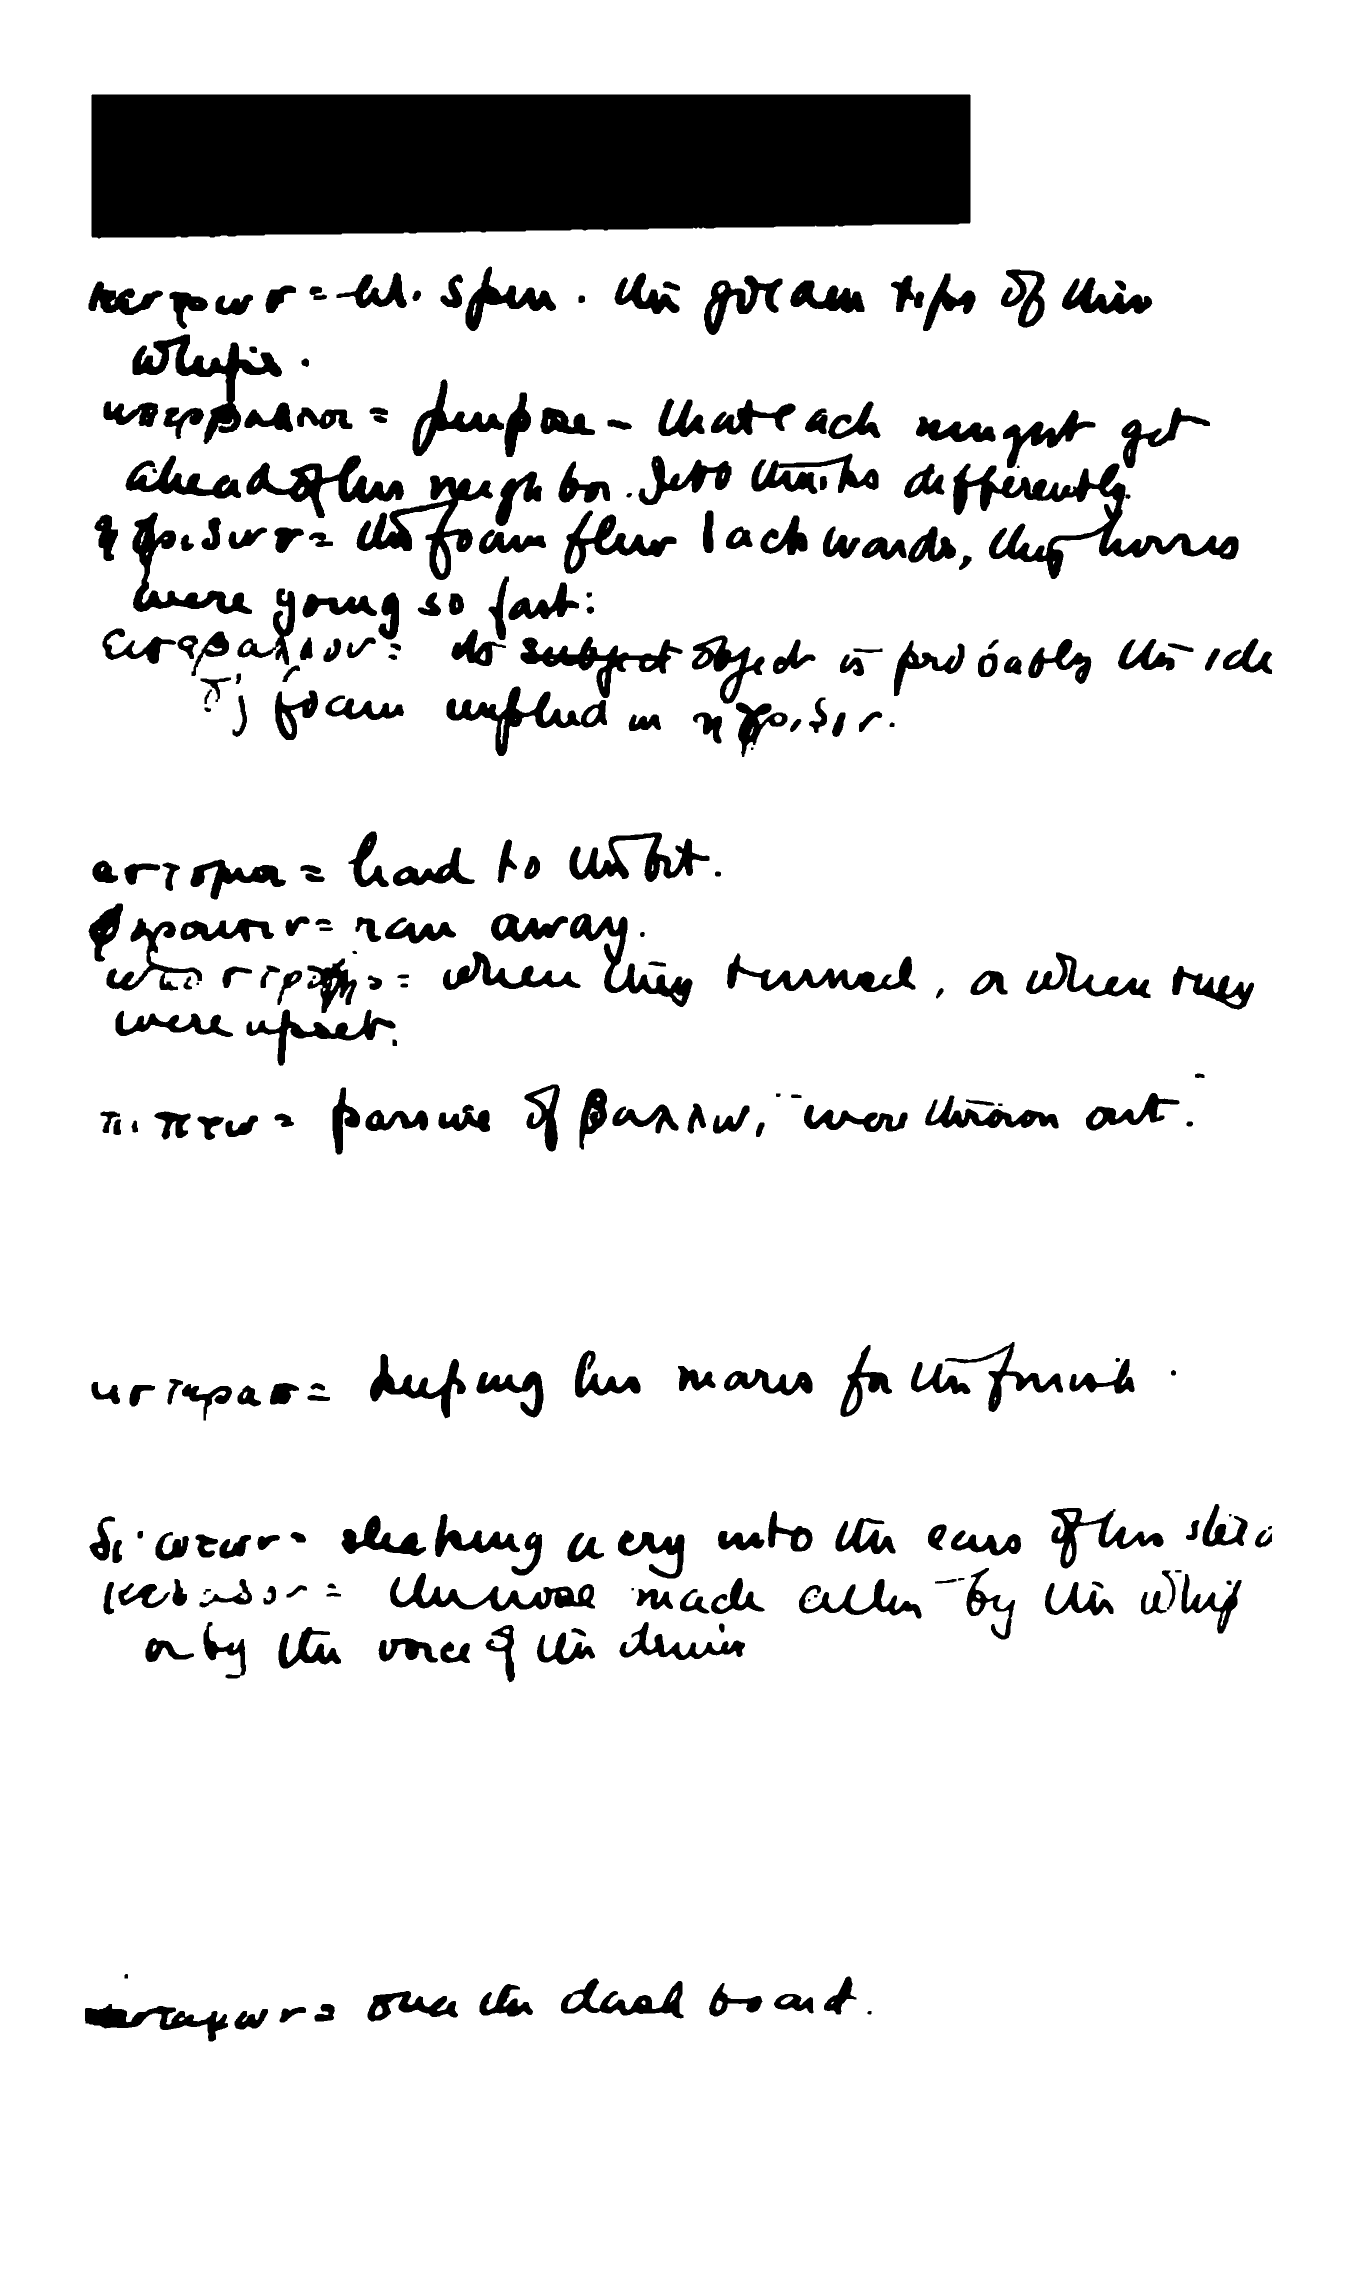 κεντρων = lit. spur. the gold am tips of their
whips.
υπερβαλλοι = purpose – that each might get
ahead of his neighbor. Jebb thinks differently.
ηφριζον = the foam flew backwards, they horses
were going so fast:
εισεβαλλον = its subject object is probably the idea
of foam implied in ηφριζον.
αστομοι = hard to the bit.
φερουσιν = ran away.
υποστροφης = when they turned, or when they
were upset.
πιπτω = passive of βαλλω, "were thrown out".
υστερας = keeping his mares for the finish.
δι' ωτων = shaking a cry into the ears of his steeds
κελαδον = the noise made either by the whip
or by the voice of the driver
αντυγων = over the dash board.